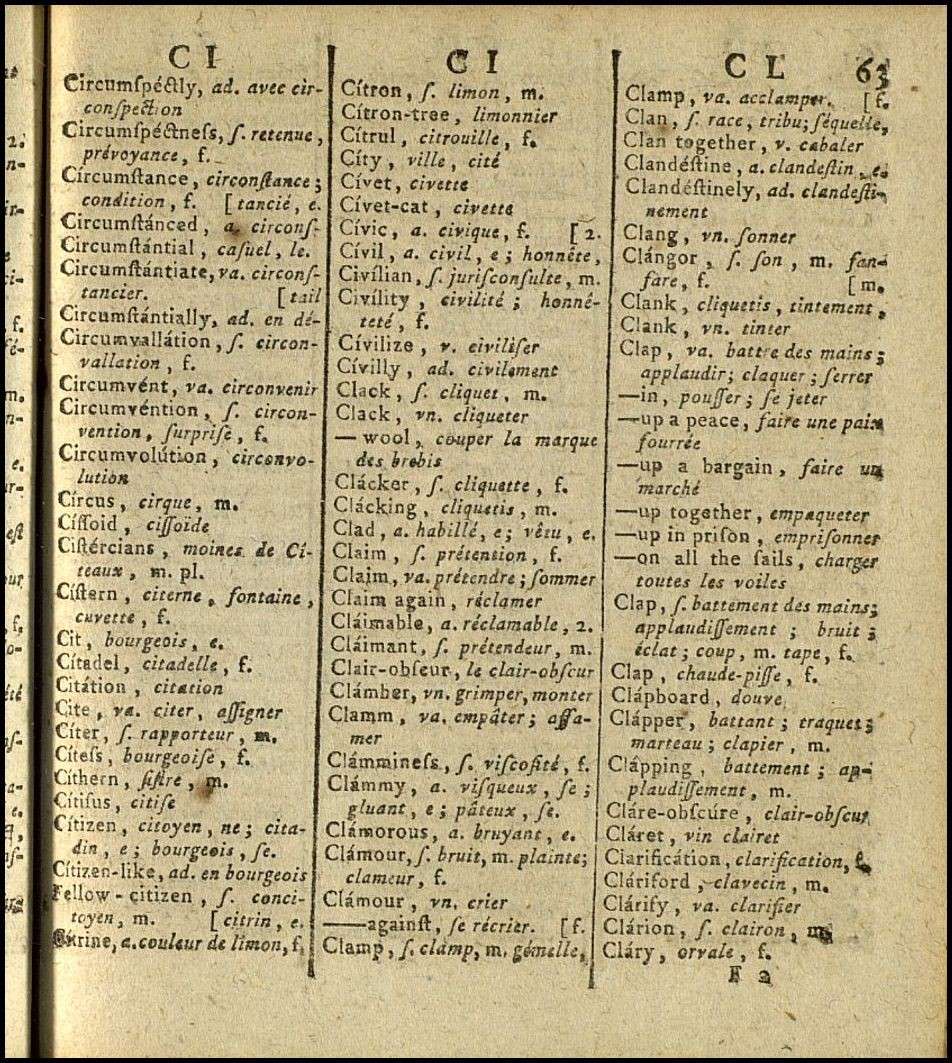 C I
Circumſpéctly, ad. avec cir-
conſpection
Circumſpéctneſs, ſ. retenue,
prévoyance, f.
Círcumſtance, circonſtance;
condition, f. [tancié, e.
Circumſtánced, a. circonſ-
Circumſtántial, caſuel, le.
Circumſtántiate, va. circonſ-
tancier. [tail
Circumſtántially, ad. en dé-
Circumvallátion, ſ. circon-
vallation, f.
Circumvént, va. circonvenir
Circumvéntion, ſ. circon-
vention, ſurpriſe, f.
Circumvolútion, circonvo-
lution
Círcus, cirque, m.
Ciſſoid, ciſſoïde
Ciſtércians, moines de Cí-
teaux, m. pl.
Ciſtern, citerne, fontaine,
cuvette, f.
Cit, bourgeois, e.
Cítadel, citadelle, f.
Citátion, citation
Cite, va. citer, aſſigner
Cíter, ſ. rapporteur, m.
Cíteſs, bourgeoiſe, f.
Cíthern, ſiſtre, m.
Cítiſus, citiſe
Cítizen, citoyen, ne; cita-
din, e; bourgeois, ſe.
Cítizen-like, ad. en bourgeois
Fellow-citizen, ſ. conci-
toyen, m. [citrin, e.
Citrine, a. couleur de limon, f.
C I
Cítron, ſ. limon, m.
Cítron-tree, limonnier
Cítrul, citrouille, f.
Cíty, ville, cité
Cívet, civette
Cívet-cat, civette
Cívic, a. civique, f. [2.
Cívil, a. civil, e; honnête,
Civílian, ſ. juriſconſulte, m.
Civílity, civilité; honné-
teté, f.
Cívilize, v. civiliſer
Cívilly, ad. civilement
Clack, ſ. cliquet, m.
Clack, vn. cliqueter
— wool, couper la marque
des brebis
Clácker, ſ. cliquette, f.
Clácking, cliquetis, m.
Clad, a. habillé, e; vêtu, e.
Claim, ſ. prétention, f.
Claim, va. prétendre; ſommer
Claim again, réclamer
Cláimable, a. réclamable, 2.
Cláimant, ſ. prétendeur, m.
Clair-obſcur, le clair-obſcur
Clámber, vn. grimper, monter
Clamm, va. empâter; affa-
mer
Clámmineſs, ſ. viſcoſité, f.
Clámmy, a. viſqueux, ſe;
gluant, e; pâteux, ſe.
Clámorous, a. bruyant, e.
Clámour, ſ. bruit, m. plainte;
clameur, f.
Clámour, vn. crier
——againſt, ſe récrier. [f.
Clamp, ſ. clamp, m. gémelle,
C L 63
Clamp, va. acclamper. [f.
Clan, ſ. race, tribu; ſéquelle,
Clan together, v. cabaler
Clandéſtine, a. clandeſtin, e.
Clandéſtinely, ad. clandeſti-
nement
Clang, vn. ſonner
Clángor, ſ. ſon, m. fan-
fare, f. [m.
Clank, cliquetis, tintement,
Clank, vn. tinter
Clap, va. battre des mains;
applaudir; claquer; ſerrer
—in, pouſſer; ſe jeter
—up a peace, faire une paix
fourrée
—up a bargain, faire un
marché
—up together, empaqueter
—up in priſon, empriſonner
—on all the ſails, charger
toutes les voiles
Clap, ſ. battement des mains;
applaudiſſement; bruit;
éclat; coup, m. tape, f.
Clap, chaude-piſſe, f.
Clápboard, douve
Clápper, battant; traquet;
marteau; clapier, m.
Clápping, battement; ap-
plaudiſſement, m.
Cláre-obſcúre, clair-obſcur
Cláret, vin clairet
Clarificátion, clarification, f.
Cláriford, clavecin, m.
Clárify, va. clarifier
Clárion, ſ. clairon, m.
Cláry, orvale, f.
F 2